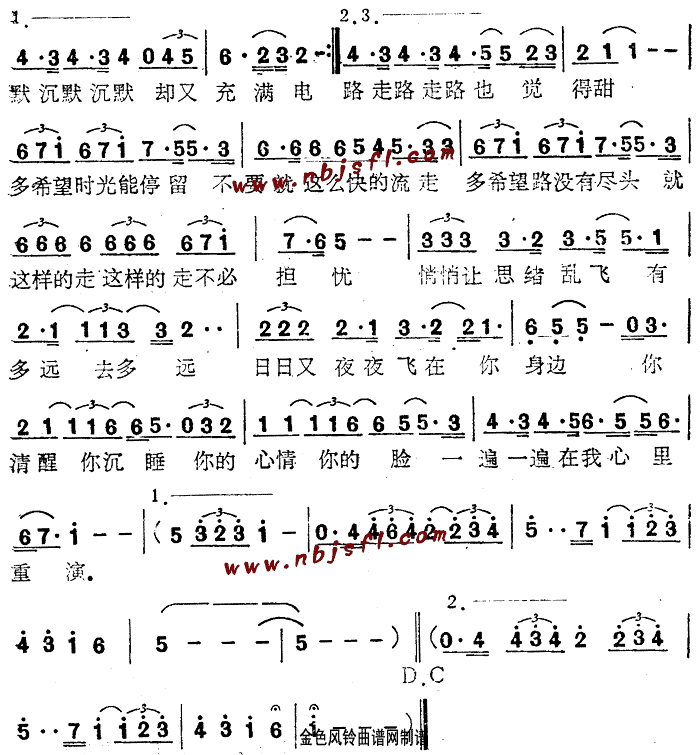 1. 2.3.
4·3 4·3 4 045 | 6· 23 2 - :‖ 4·3 4·3 4·5 5 23 | 2 1 1 - - |
默沉默沉默 却又 充 满 电 路走路走路也 觉 得甜
671 671 7·55·3 | 6·6 6 654 5·33 | 671 671 7·55·3 |
多希望时光能停留 不要就这么快的流走 多希望路没有尽头 就
666 6 666 671 | 7·6 5 - - | 333 3·2 3·5 5·1 |
这样的走这样的走不必 担 忧 悄悄让 思绪乱飞 有
2·1 113 3 2·· | 222 2·1 3·2 21· | 6 5 5 - 03· |
多远 去多 远 日日又夜夜飞在 你 身边 你
21 116 65· 032 | 11 116 6 55·3 | 4·3 4·56·5 56· |
清醒 你沉 睡 你的 心情 你的 脸 一 遍一遍在我心里
1.
67· 1 - - | (5 323 1 - | 0·4 464 2 234 | 5··7 1 123 |
重 演.
www.nbjsfl.com
www.nbjsfl.com
2.
4 3 1 6 | 5 - - - | 5 - - - ) ‖ (0·4 434 2 234 |
D.C
5··7 1 123 | 4 3 1 6 | 1 - - - ) ‖
金色风铃曲谱网制谱